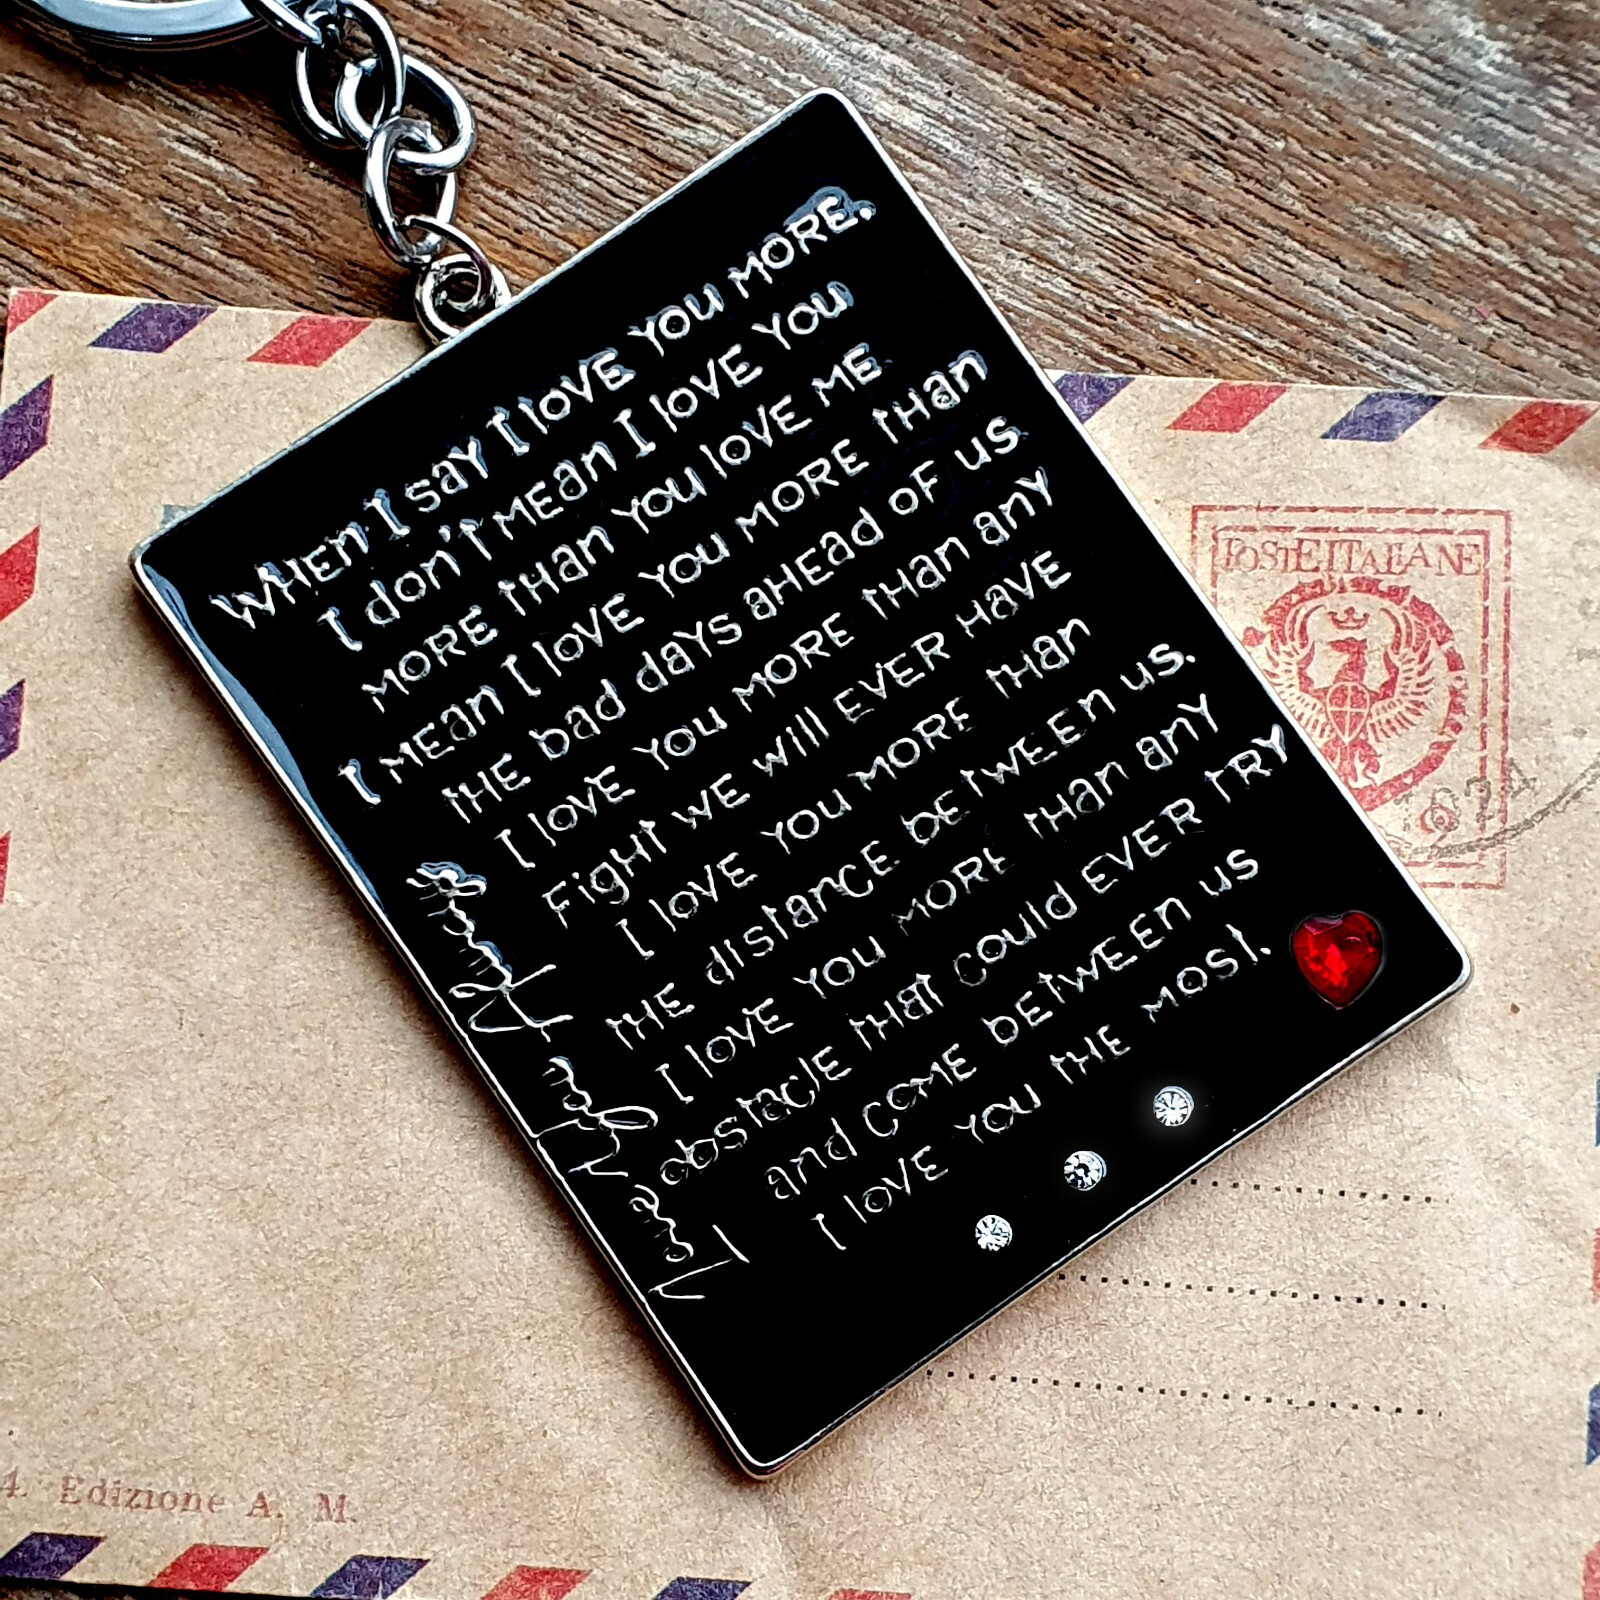 WHEN I SAY I LOVE YOU MORE.
I don't MEan I LOVE YOU
MORE THan YOU LOVE ME
I MEan I LOVE YOU MORE THan
THE bad daYS aHEad OF US
I LOVE YOU MORE THan anY
FigHt WE will EVER HaVE
I LOVE YOU MORE THan
THE distanCE BETWEEn US.
I LOVE YOU MORE THan anY
obstacle THat Could EVER TRY
and COME BETWEEn US
I LOVE YOU THE MOST.
POSTE ITALIANE
4. Edizione A. M.